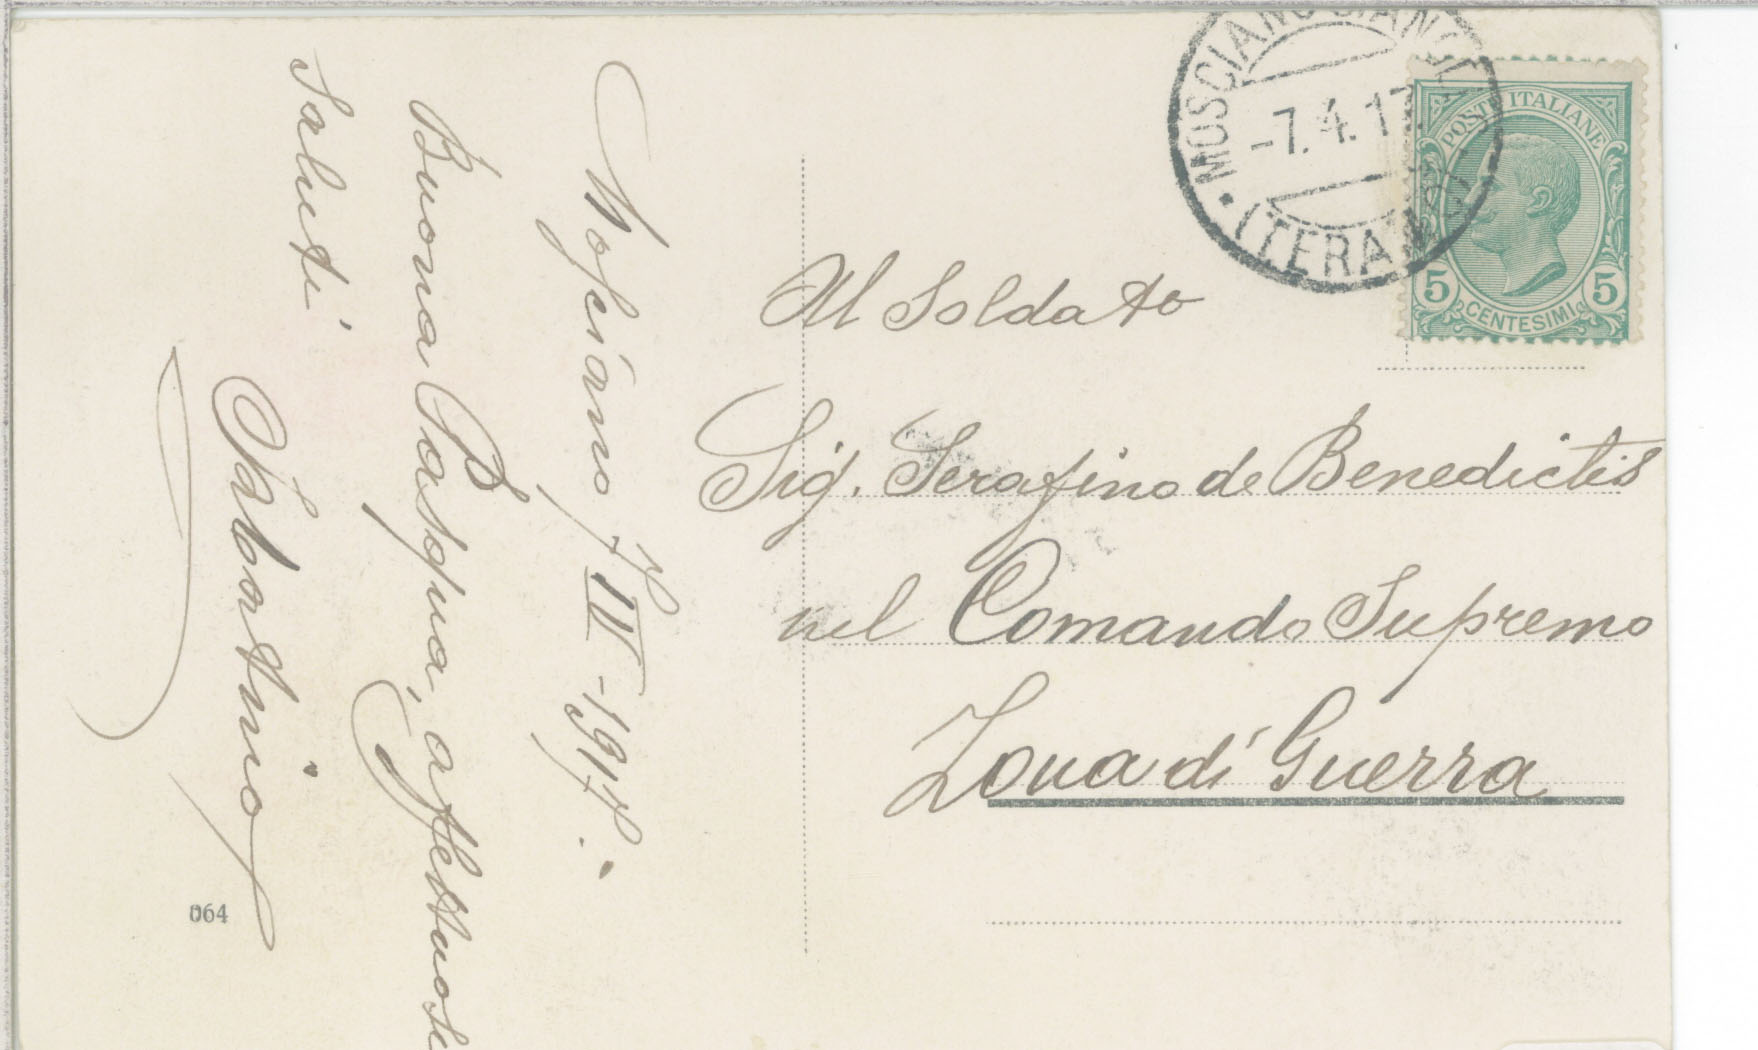 Mosciano, 7 IV - 1917.
Buona Pasqua, affettuosi
saluti
Sabatino
064
MOSCIANO
-7.4.17
(TERAMO)
POSTE ITALIANE
5 5
CENTESIMI
Al Soldato
Sig. Serafino de Benedictis
nel Comando Supremo
Zona di Guerra